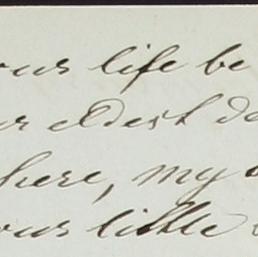 our life be
eldest
here, my
our little